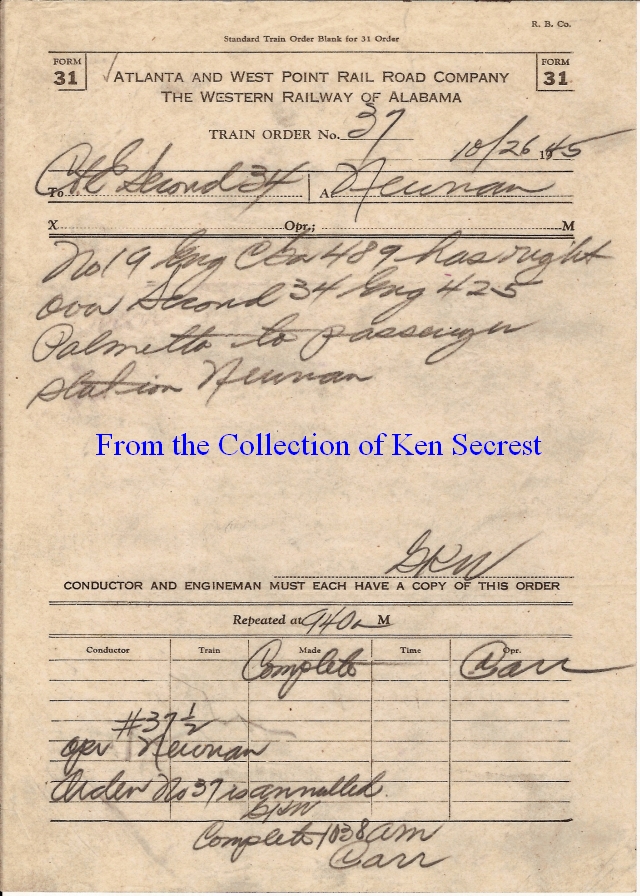 R. B. Co.
Standard Train Order Blank for 31 Order
FORM 31
FORM 31
ATLANTA AND WEST POINT RAIL ROAD COMPANY
THE WESTERN RAILWAY OF ALABAMA
TRAIN ORDER No. 37
10/26 1945
To C&E Second 34 At Newnan
X Opr.; M
No 19 Eng Cofga 489 has right
over Second 34 Eng 425
Palmetto to passenger
station Newnan
From the Collection of Ken Secrest
GKW
CONDUCTOR AND ENGINEMAN MUST EACH HAVE A COPY OF THIS ORDER
Repeated at 940a M
Conductor Train Made Time Opr.
Complete Carr
#37 1/2
opr Newnan
Order No 37 is annulled.
GKW
Complete 1038am
Carr